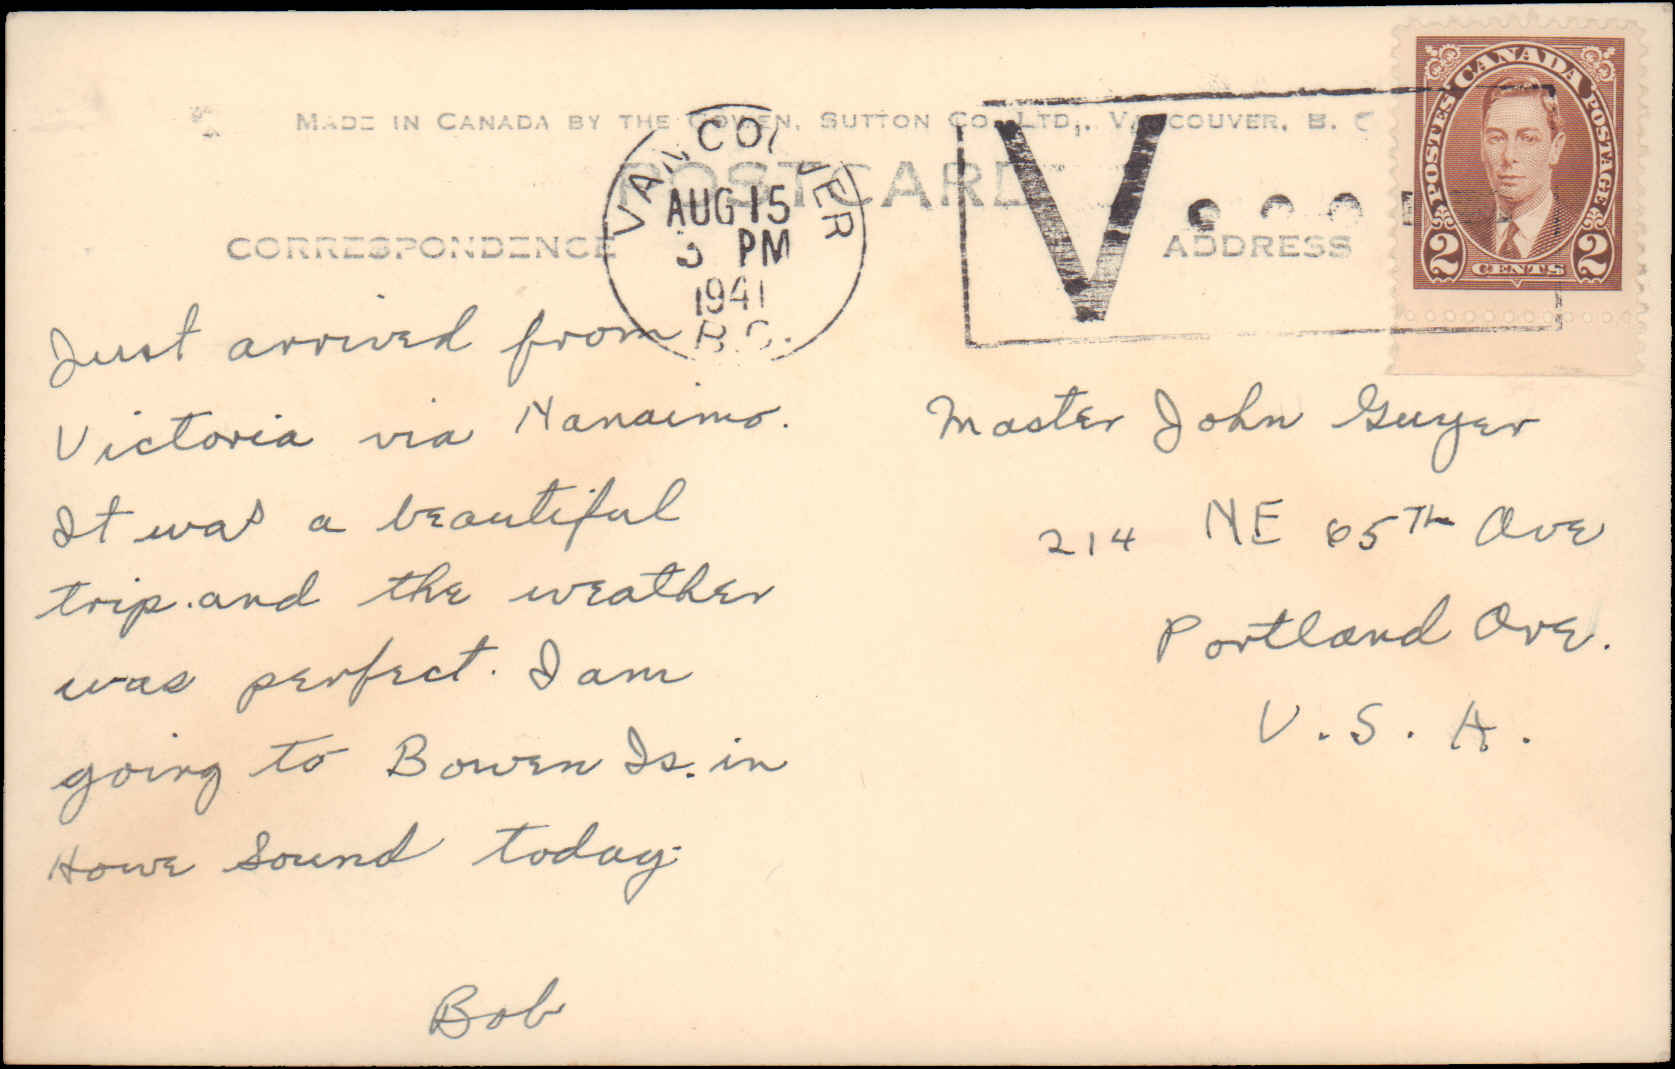 MADE IN CANADA BY THE GOWEN, SUTTON CO. LTD., VANCOUVER, B. C.
POST CARD
VANCOUVER
AUG 15
3 PM
1941
B.C.
V...
CORRESPONDENCE
ADDRESS
CANADA
POSTES POSTAGE
2 CENTS 2
Just arrived from
Victoria via Nanaimo.
It was a beautiful
trip. and the weather
was perfect. I am
going to Bowen Is. in
Howe Sound today.
Bob
Master John Guyer
214 NE 65Th Ave
Portland Ore.
U.S.A.